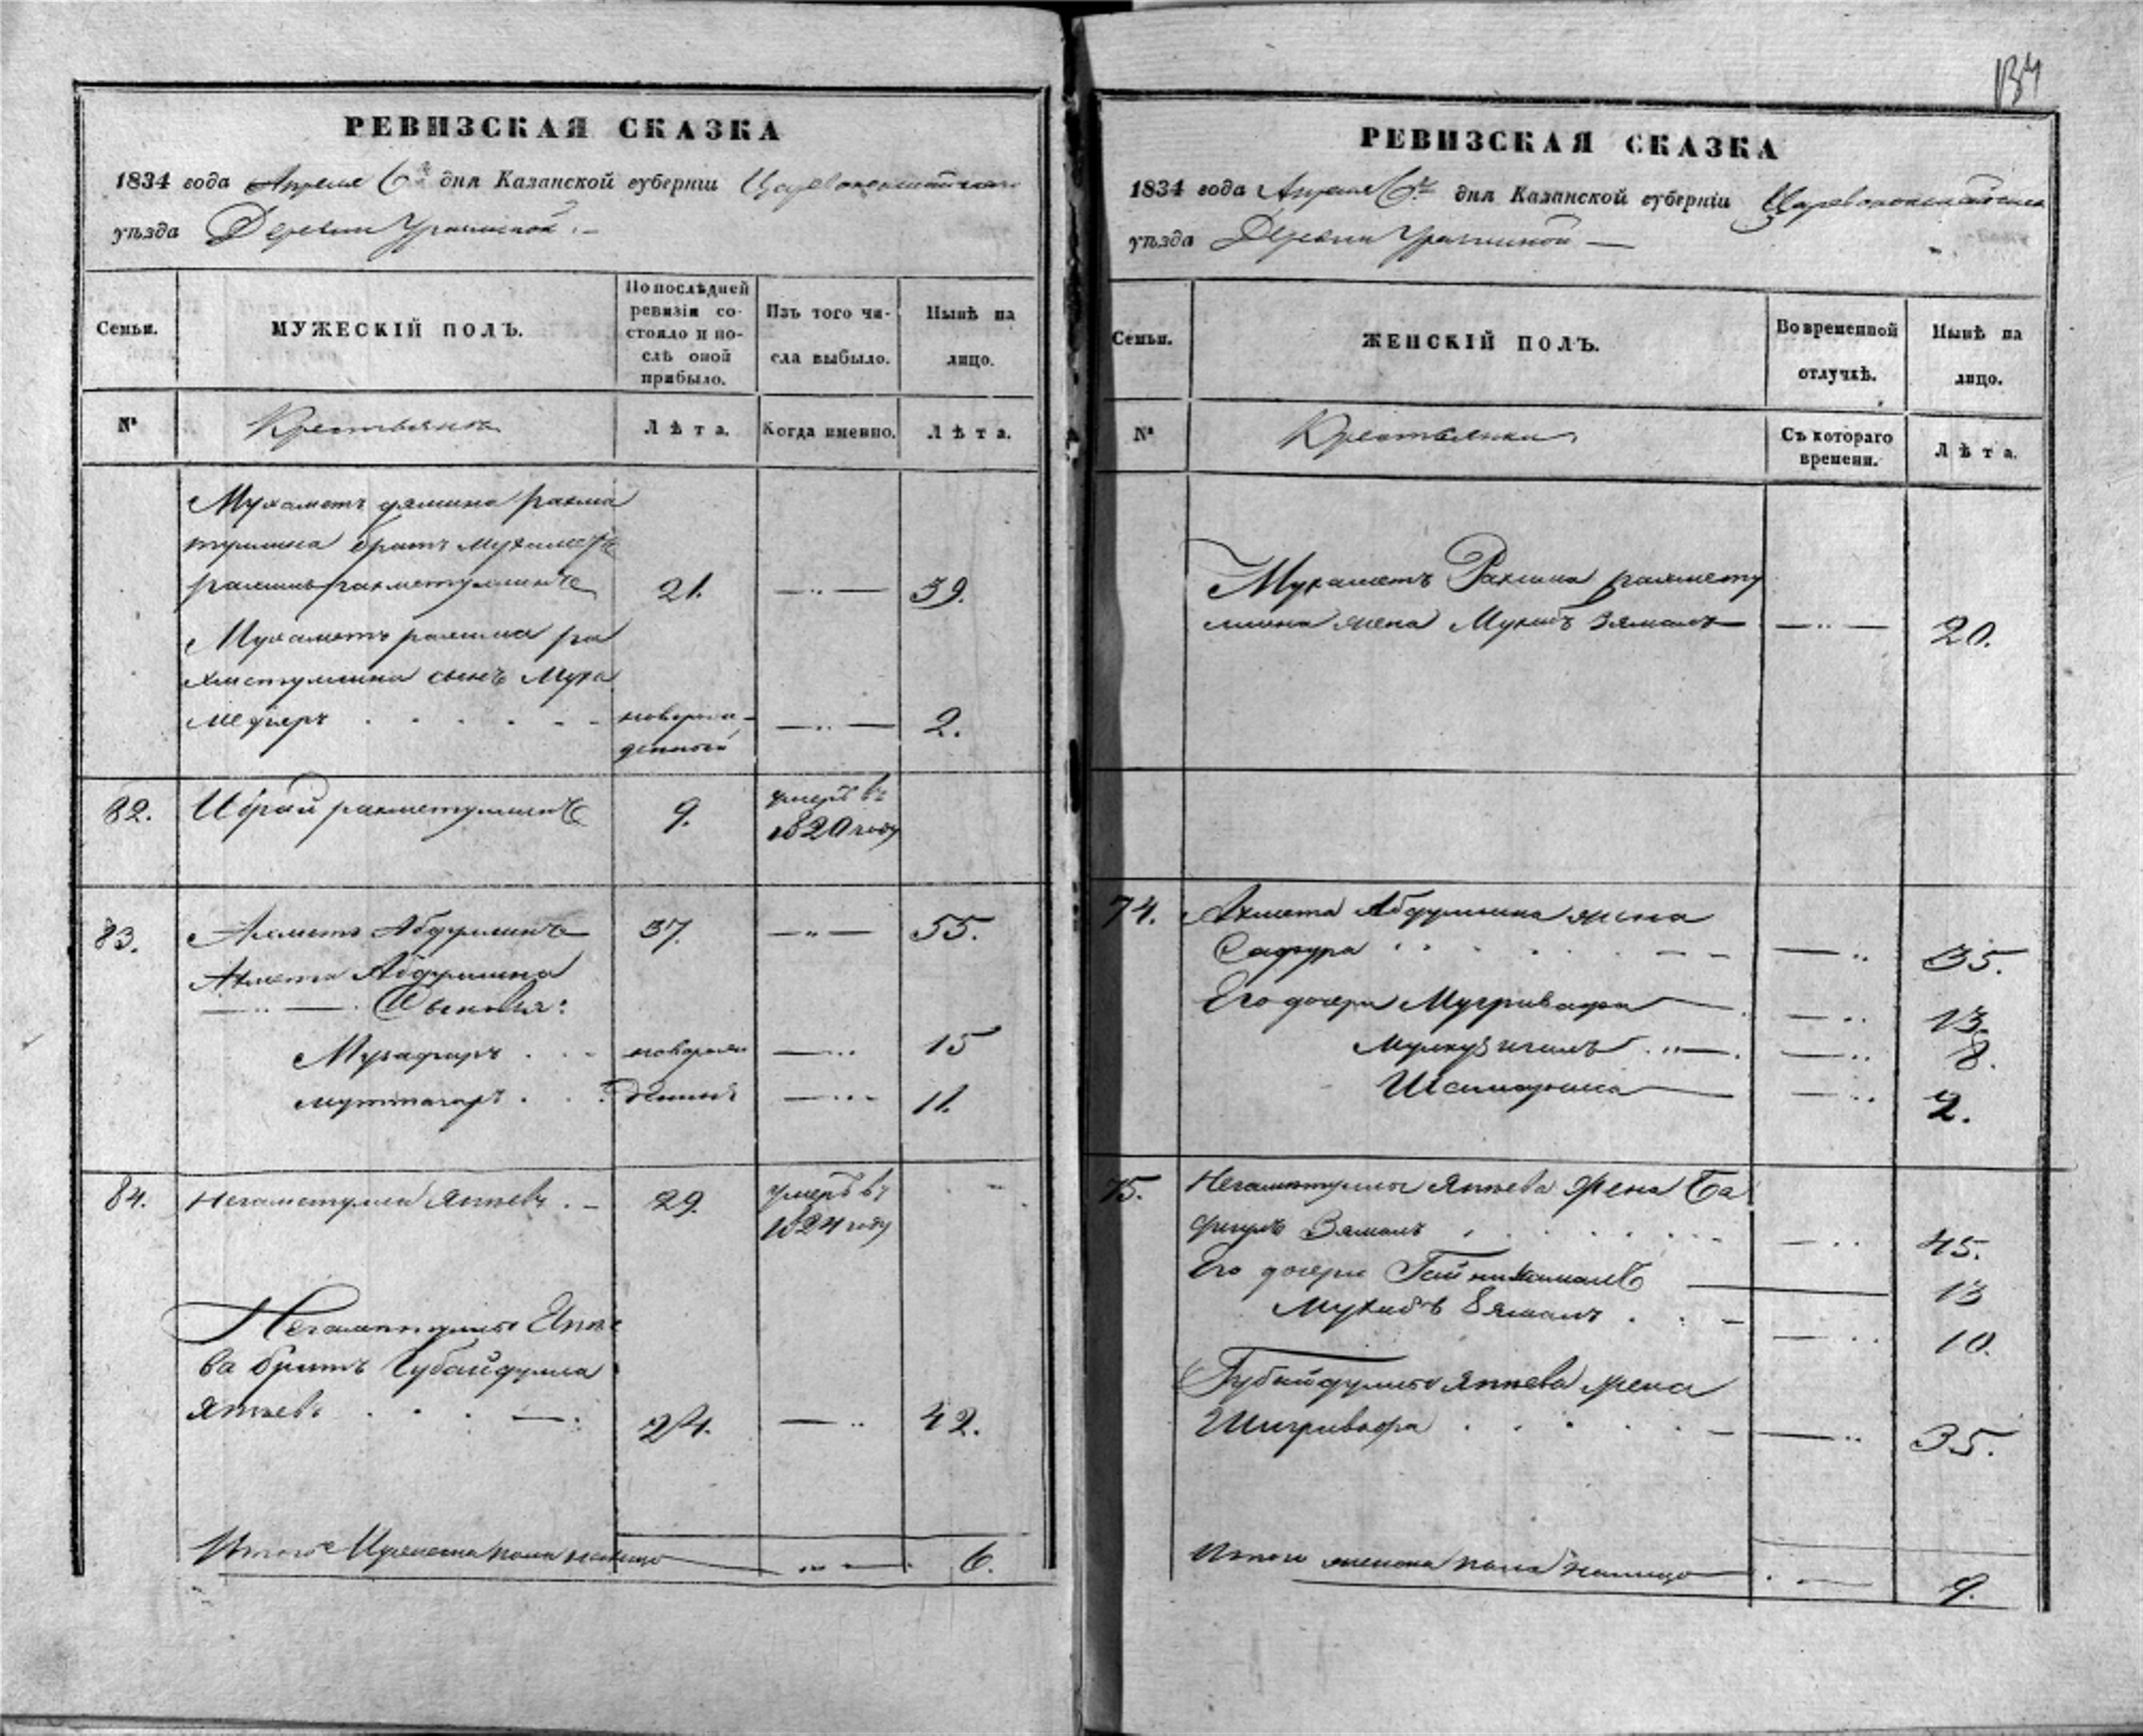 134
РЕВИЗСКАЯ СКАЗКА
1834 года Апреля 6го дня Казанской губерніи Царевококшайскаго
уѣзда Деревни
Семьи.
МУЖЕСКІЙ ПОЛЪ.
По послѣдней
ревизіи со-
стояло и по-
слѣ оной
прибыло.
Изъ того чи-
сла выбыло.
Нынѣ на
лицо.
№
Крестьянъ
Лѣта.
Когда именно.
Лѣта.
Мухаметъ рахма
туллина братъ
рахметуллинъ 21. 39.
Мухаметъ рахима ра
хметуллина сынъ Муха
медъяръ новорож-
денный 2.
82. Ибрай рахметуллинъ 9. умеръ въ
1820 году
83. Ахметъ Абдуллинъ 37. 55.
Ахмета Абдуллина
Сыновья:
новорож 15
денные 11.
84. Негаметулла Яппевъ 29. умеръ въ
1824 году
Негаметуллы Яппе
ва братъ Губайдулла
Яппевъ 24. 42.
Итого Мужеска пола налицо 6.
РЕВИЗСКАЯ СКАЗКА
1834 года Апреля 6го дня Казанской губерніи Царевококшайска
уѣзда Деревни
Семьи.
ЖЕНСКІЙ ПОЛЪ.
Во временной
отлучкѣ.
Нынѣ на
лицо.
№
Крестьянки
Съ котораго
времени.
Лѣта.
Мухаметъ Рахима рахмету
ллина жена Мухибъ зямалъ 20.
74. Ахмета Абдуллина жена
Сафура 35.
Его дочери 13.
8.
2.
75. Негаметуллы Яппева жена Ба
Зямалъ 45.
Его дочери Гайникамалъ 13
Мухибъ Зямалъ 10.
Губайдуллы Яппева жена
35.
Итого женска пола налицо 9.